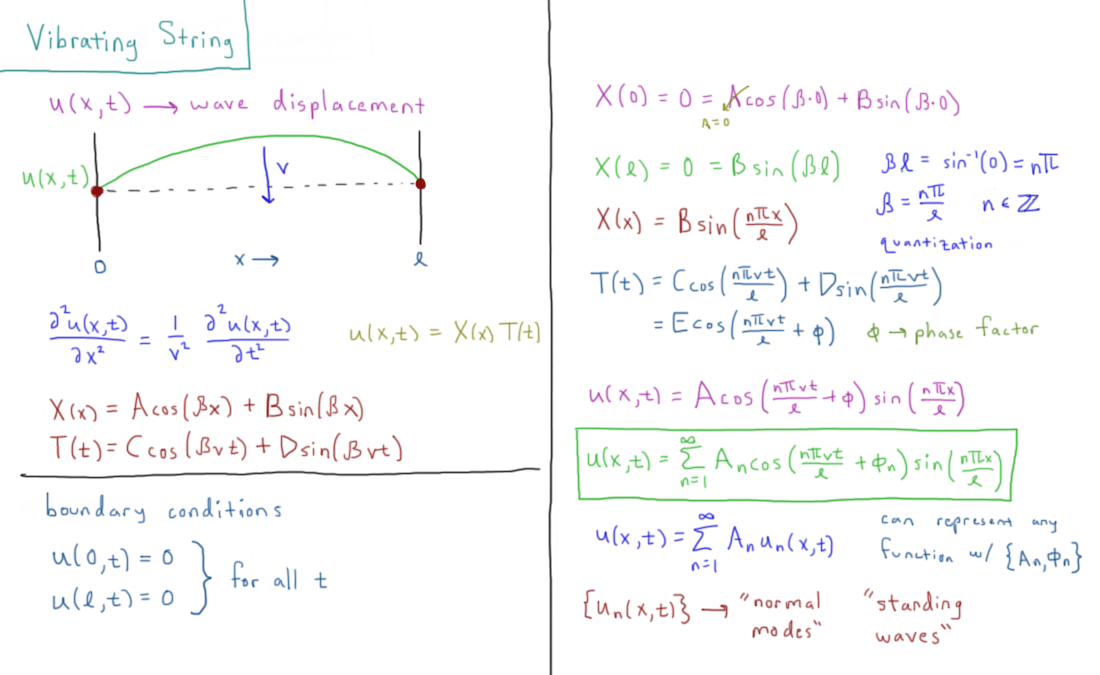 Vibrating String
u(x,t) → wave displacement
u(x,t)
v
0
x →
ℓ
∂²u(x,t)/∂x² = 1/v² ∂²u(x,t)/∂t²
u(x,t) = X(x) T(t)
X(x) = A cos(βx) + B sin(βx)
T(t) = C cos(βvt) + D sin(βvt)
boundary conditions
u(0,t) = 0
u(ℓ,t) = 0
} for all t
X(0) = 0 = A cos(β·0) + B sin(β·0)
A=0
X(ℓ) = 0 = B sin(βℓ)
βℓ = sin⁻¹(0) = nπ
β = nπ/ℓ n ∈ ℤ
X(x) = B sin(nπx/ℓ)
quantization
T(t) = C cos(nπvt/ℓ) + D sin(nπvt/ℓ)
= E cos(nπvt/ℓ + ϕ)
ϕ → phase factor
u(x,t) = A cos(nπvt/ℓ + ϕ) sin(nπx/ℓ)
u(x,t) = ∞∑n=1 Aₙ cos(nπvt/ℓ + ϕₙ) sin(nπx/ℓ)
u(x,t) = ∞∑n=1 Aₙ uₙ(x,t)
can represent any
function w/ {Aₙ,ϕₙ}
{uₙ(x,t)} → "normal
modes"
"standing
waves"